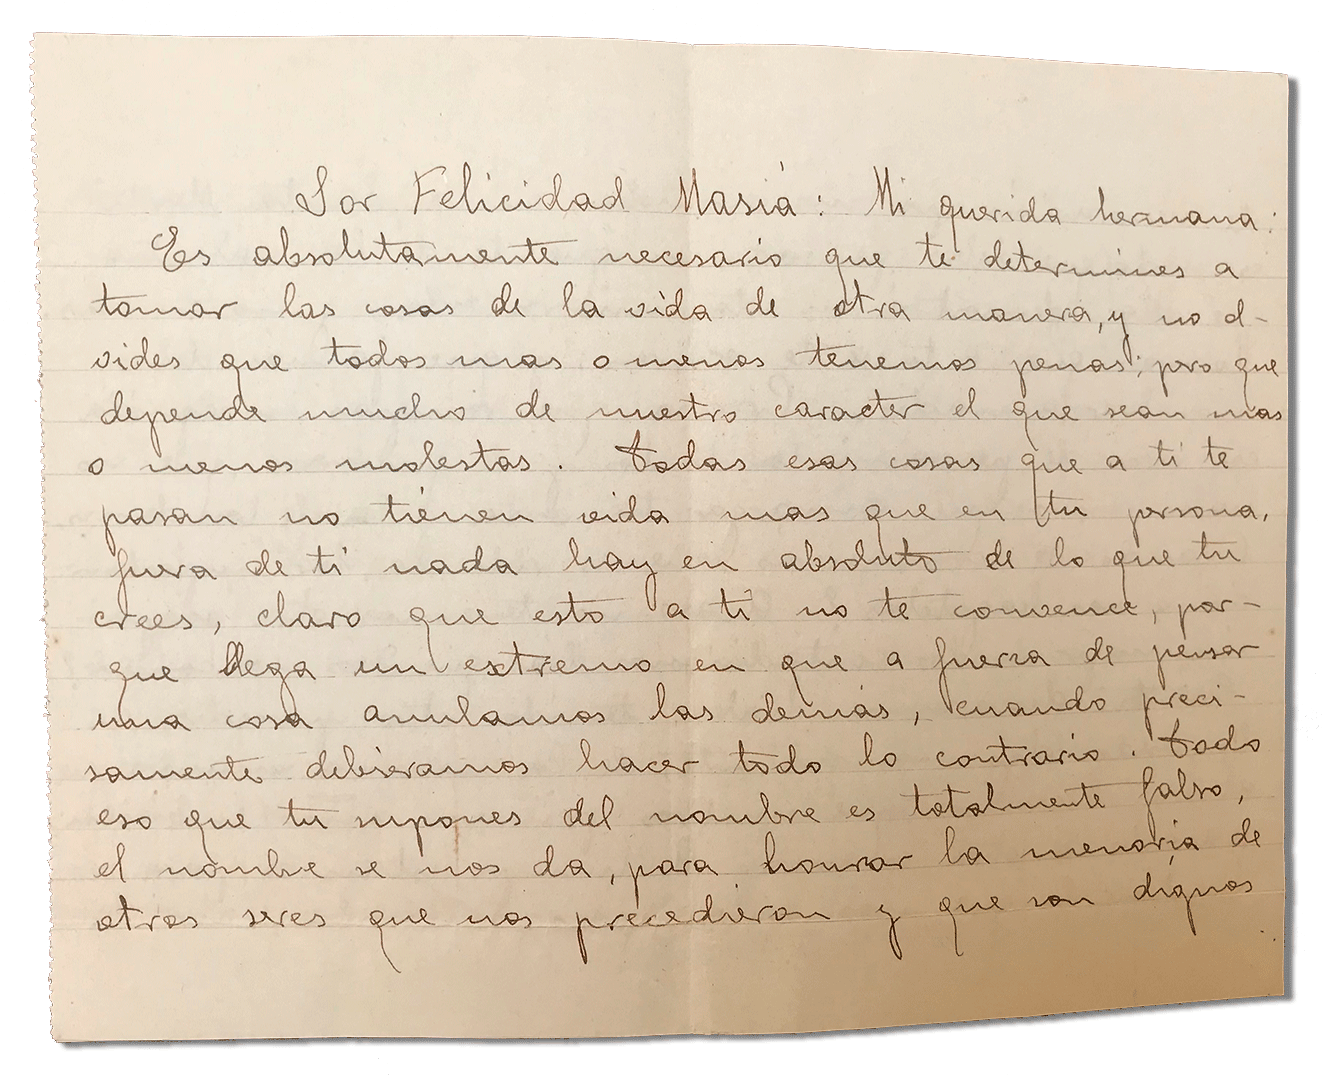 Sor Felicidad Masiá: Mi querida hermana:
Es absolutamente necesario que te determines a
tomar las cosas de la vida de otra manera, y no ol-
vides que todos mas o menos tenemos penas; pero que
depende mucho de nuestro caracter el que sean mas
o menos molestas. Todas esas cosas que a ti te
pasan no tienen vida mas que en tu persona,
fuera de ti nada hay en absoluto de lo que tu
crees, claro que esto a ti no te convence, por-
que llega un extremo en que a fuerza de pensar
una cosa anulamos las demás, cuando preci-
samente debieramos hacer todo lo contrario. Todo
eso que tu supones del nombre es totalmente falso,
el nombre se nos da, para honrar la memoria de
otros seres que nos precedieron y que son dignos